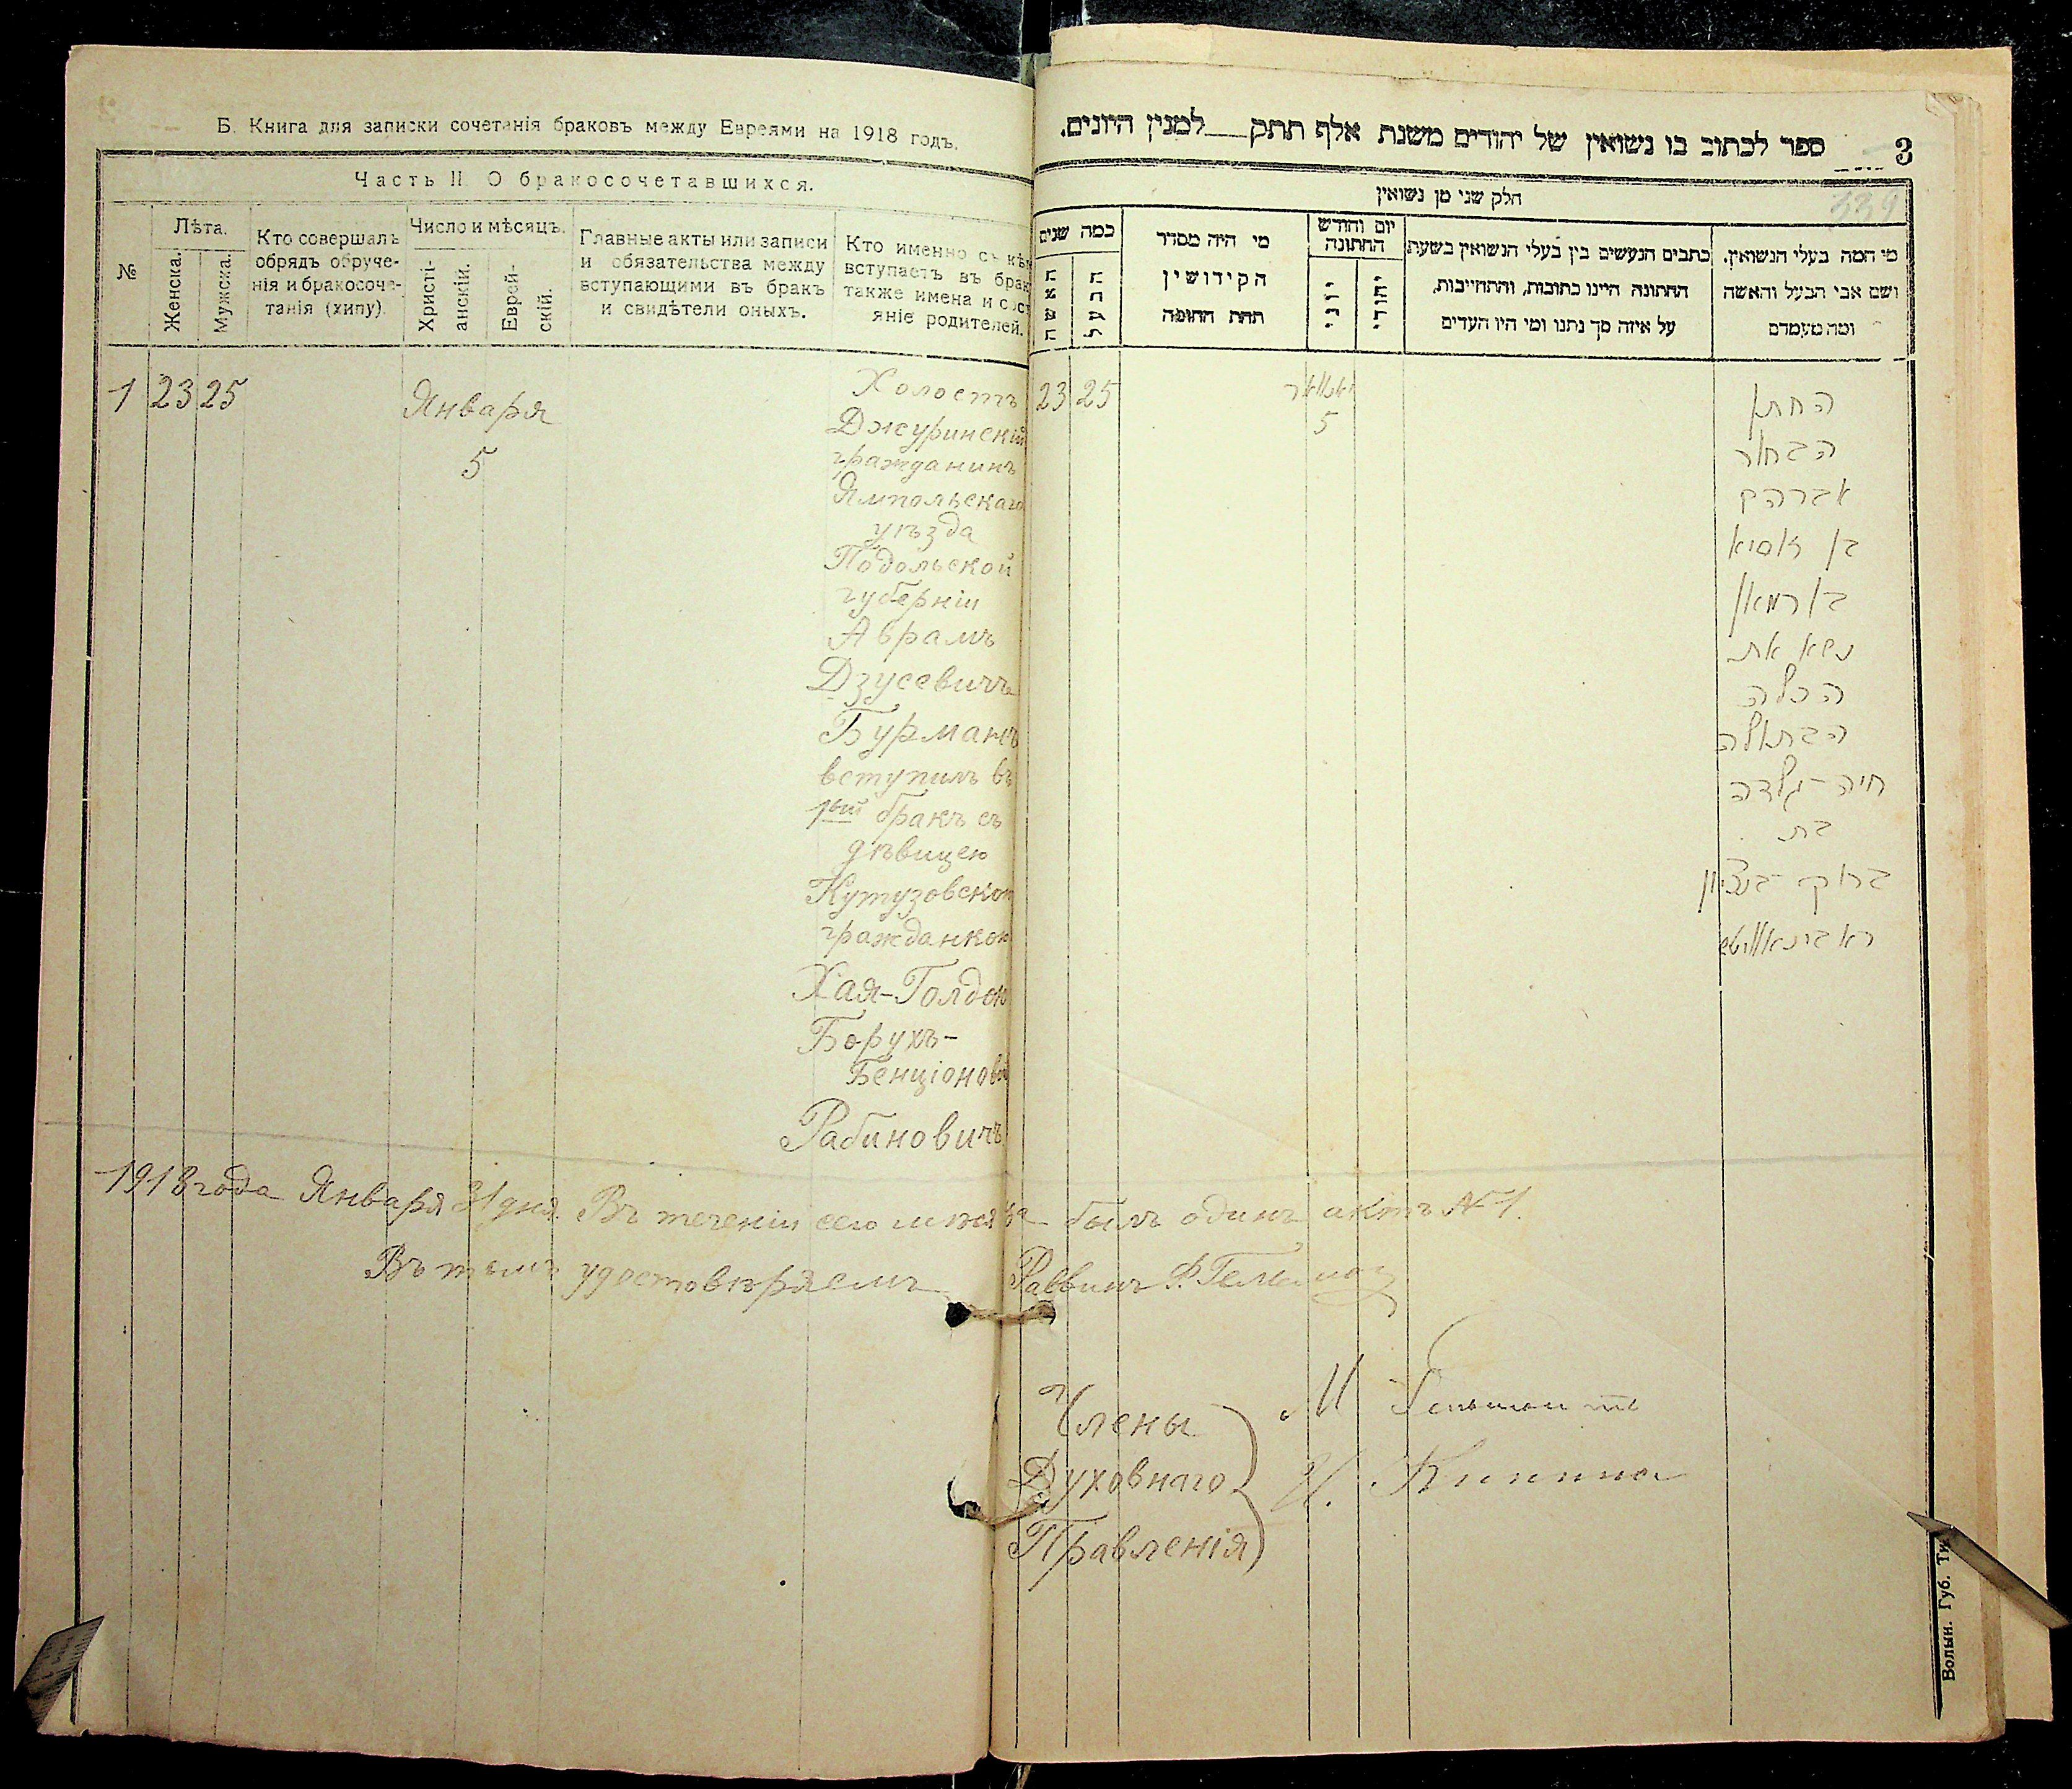 Б. Книга для записки сочетанія браковъ между Евреями на 1918 годъ.
Часть II. О бракосочетавшихся.
№
Лѣта.
Женска.
Мужска.
Кто совершалъ
обрядъ обруче-
нія и бракосоче-
танія (хипу).
Число и мѣсяцъ.
Христі-
анскій.
Еврей-
скій.
Главные акты или записи
и обязательства между
вступающими въ бракъ
и свидѣтели оныхъ.
Кто именно съ кѣм
вступаетъ въ брак
также имена и сос
яніе родителей.
1 23 25
Января
5
Холостъ
Джуринскій
гражданинъ
Ямпольскаго
уѣзда
Подольской
губерніи
Аврамъ
Дзусевичъ
Бурманъ
вступилъ въ
1ый бракъ съ
дѣвицею
Кутузовской
гражданкой
Хая-Голдой
Борухъ-
Бенціоновой
Рабиновичъ
ספר לכתוב בו נשואין של יהודים משנת אלף תתק למנין היונים.
3
334
חלק שני מן נשואין
כמה שנים
האשה
הבעל
מי היה מסדר
הקידושין
תחת החופה
יום וחודש
החתונה
יוני
יהודי
כתבים הנעשים בין בעלי הנשואין בשעת
החתונה היינו כתובות, והתחייבות,
על איזה סך נתנו ומי היו העדים
מי המה בעלי הנשואין,
ושם אבי הבעל והאשה
ומה מעמדם
23 25
יאנואר
5
החתן
הבחור
אברהם
בן זוסיא
בורמאן
נשא את
הכלה
הבתולה
חיה-גולדה
בת
ברוך-בנציון
ראבינאוויטש
1918 года Января 31 дня. Въ теченіи сего мѣсяца былъ одинъ актъ №1.
Въ томъ удостовѣряемъ Раввинъ Ф.
Члены
Духовнаго
Правленія
М
И.
Волын. Губ. Ти